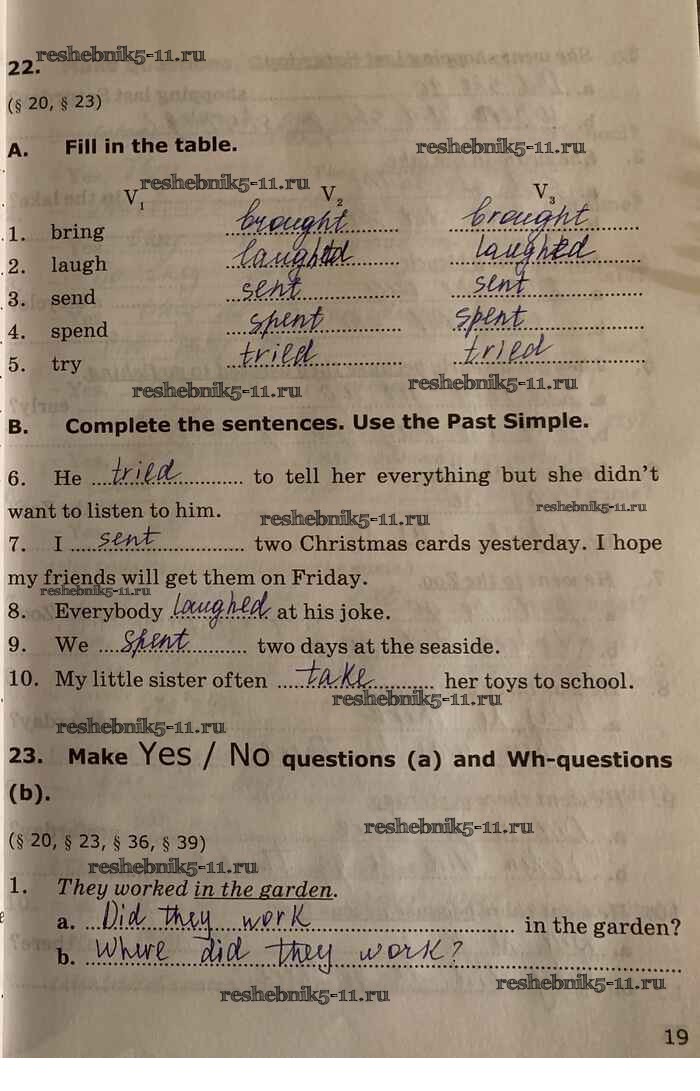 reshebnik5-11.ru
22.
(§ 20, § 23)
A. Fill in the table. reshebnik5-11.ru
reshebnik5-11.ru
V₁ V₂ V₃
1. bring brought brought
2. laugh laughed laughed
3. send sent sent
4. spend spent spent
5. try tried tried
reshebnik5-11.ru reshebnik5-11.ru
B. Complete the sentences. Use the Past Simple.
6. He ...tried... to tell her everything but she didn't
want to listen to him. reshebnik5-11.ru reshebnik5-11.ru
7. I ...sent... two Christmas cards yesterday. I hope
my friends will get them on Friday.
reshebnik5-11.ru
8. Everybody laughed at his joke.
9. We ...spent... two days at the seaside.
10. My little sister often ...take... her toys to school.
reshebnik5-11.ru
reshebnik5-11.ru
23. Make Yes / No questions (a) and Wh-questions
(b).
reshebnik5-11.ru
(§ 20, § 23, § 36, § 39)
reshebnik5-11.ru
1. They worked in the garden.
a. Did they work ... in the garden?
b. Where did they work?
reshebnik5-11.ru reshebnik5-11.ru
19